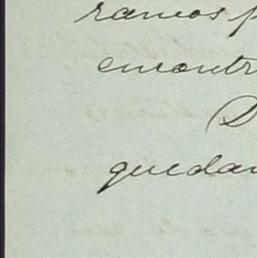 ramos p
encontr
D
quedan